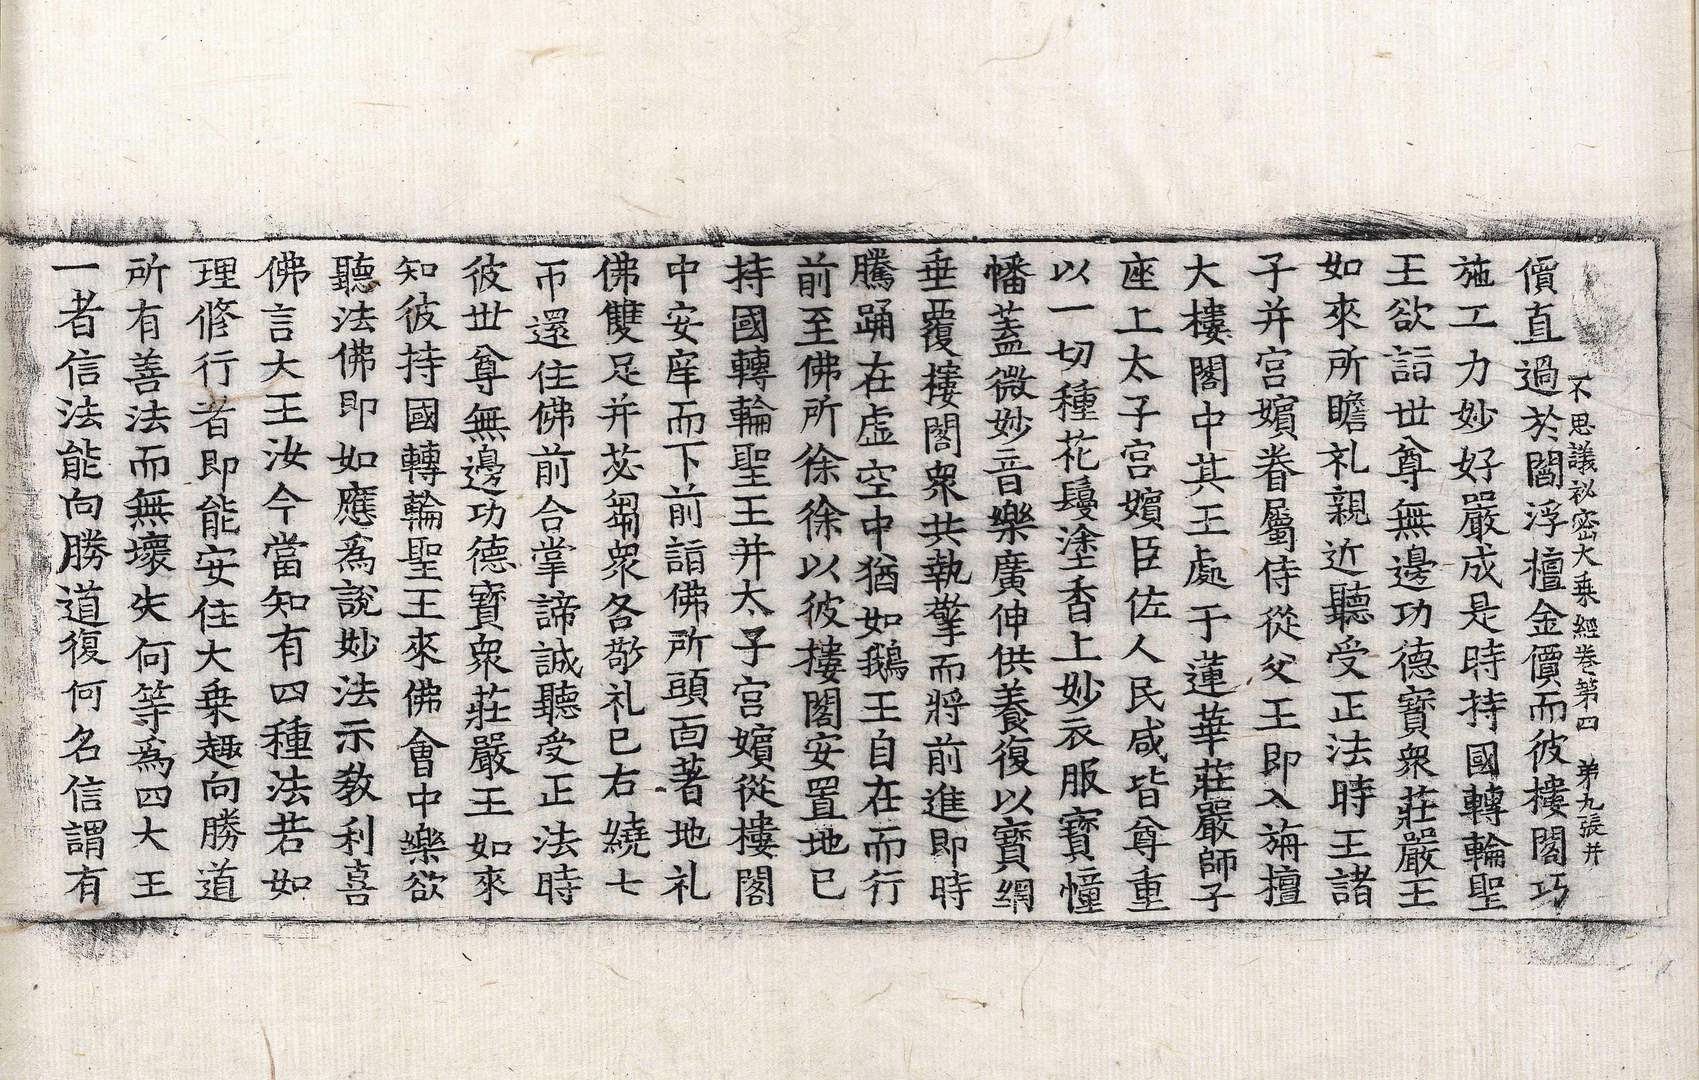 不思議祕密大乘經卷第四　第九張　并
價直過於閻浮檀金價而彼樓閣巧
施工力妙好嚴成是時持國轉輪聖
王欲詣世尊無邊功德寶衆莊嚴王
如來所瞻礼親近聽受正法時王諸
子并宮嬪眷屬侍從父王即入旃檀
大樓閣中其王處于蓮華莊嚴師子
座上太子宮嬪臣佐人民咸皆尊重
以一切種花鬘塗香上妙衣服寶幢
幡蓋微妙音樂廣伸供養復以寶網
垂覆樓閣衆共執擎而將前進即時
騰踊在虛空中猶如鵝王自在而行
前至佛所徐徐以彼樓閣安置地已
持國轉輪聖王并太子宮嬪從樓閣
中安庠而下前詣佛所頭面著地礼
佛雙足并苾芻衆各敬礼已右繞七
帀還住佛前合掌諦誠聽受正法時
彼世尊無邊功德寶衆莊嚴王如來
知彼持國轉輪聖王來佛會中樂欲
聽法佛即如應爲說妙法示教利喜
佛言大王汝今當知有四種法若如
理修行者即能安住大乘趣向勝道
所有善法而無壞失何等爲四大王
一者信法能向勝道復何名信謂有